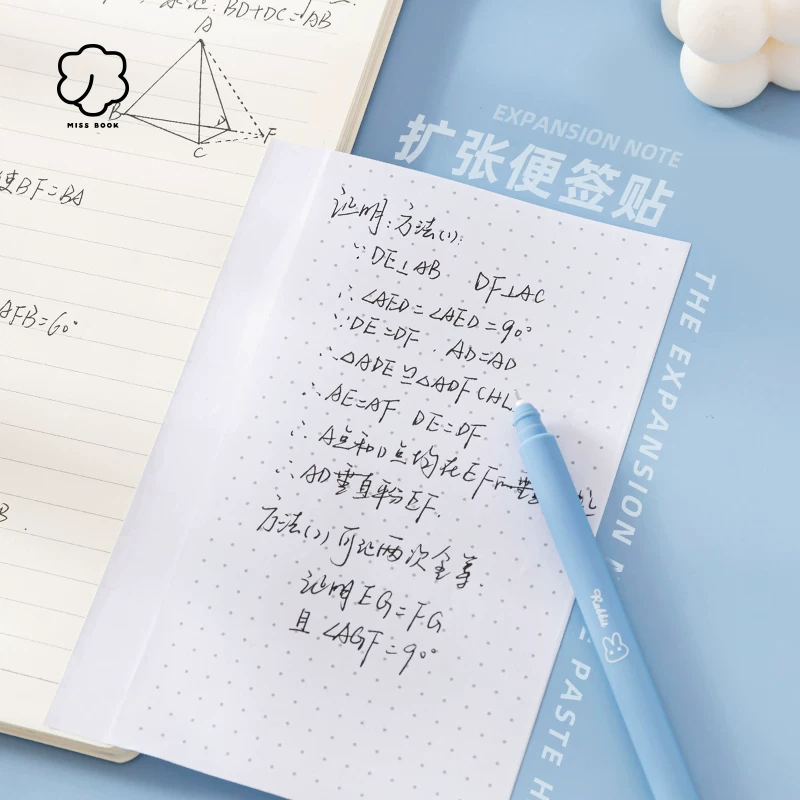 BD+DC=√AB
A
B
D
F
C
MISS BOOK
BF=BA
AFB=60°
B.
EXPANSION NOTE
扩张便签贴
证明:方法(1):
∵DE⊥AB DF⊥AC
∴∠AED=∠AED=90°
∵DE=DF AD=AD
∴△ADE≌△ADF(HL
∴AE=AF DE=DF
∴A点和D点均在EF的垂
∴AD垂直平分EF.
方法(2)可证两次全等.
证明EG=FG
且∠AGF=90°
THE EXPANSION
PASTE
Rabbit